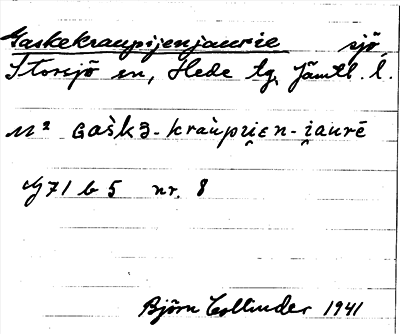 Gaskekraupijenjaurie sjö
Storsjö sn, Hede tg, Jämtl. l.
M² Gàškɜ-kraùpi̯ɛn-i̯aurē
71 b 5 nr. 8
Björn Collinder 1941